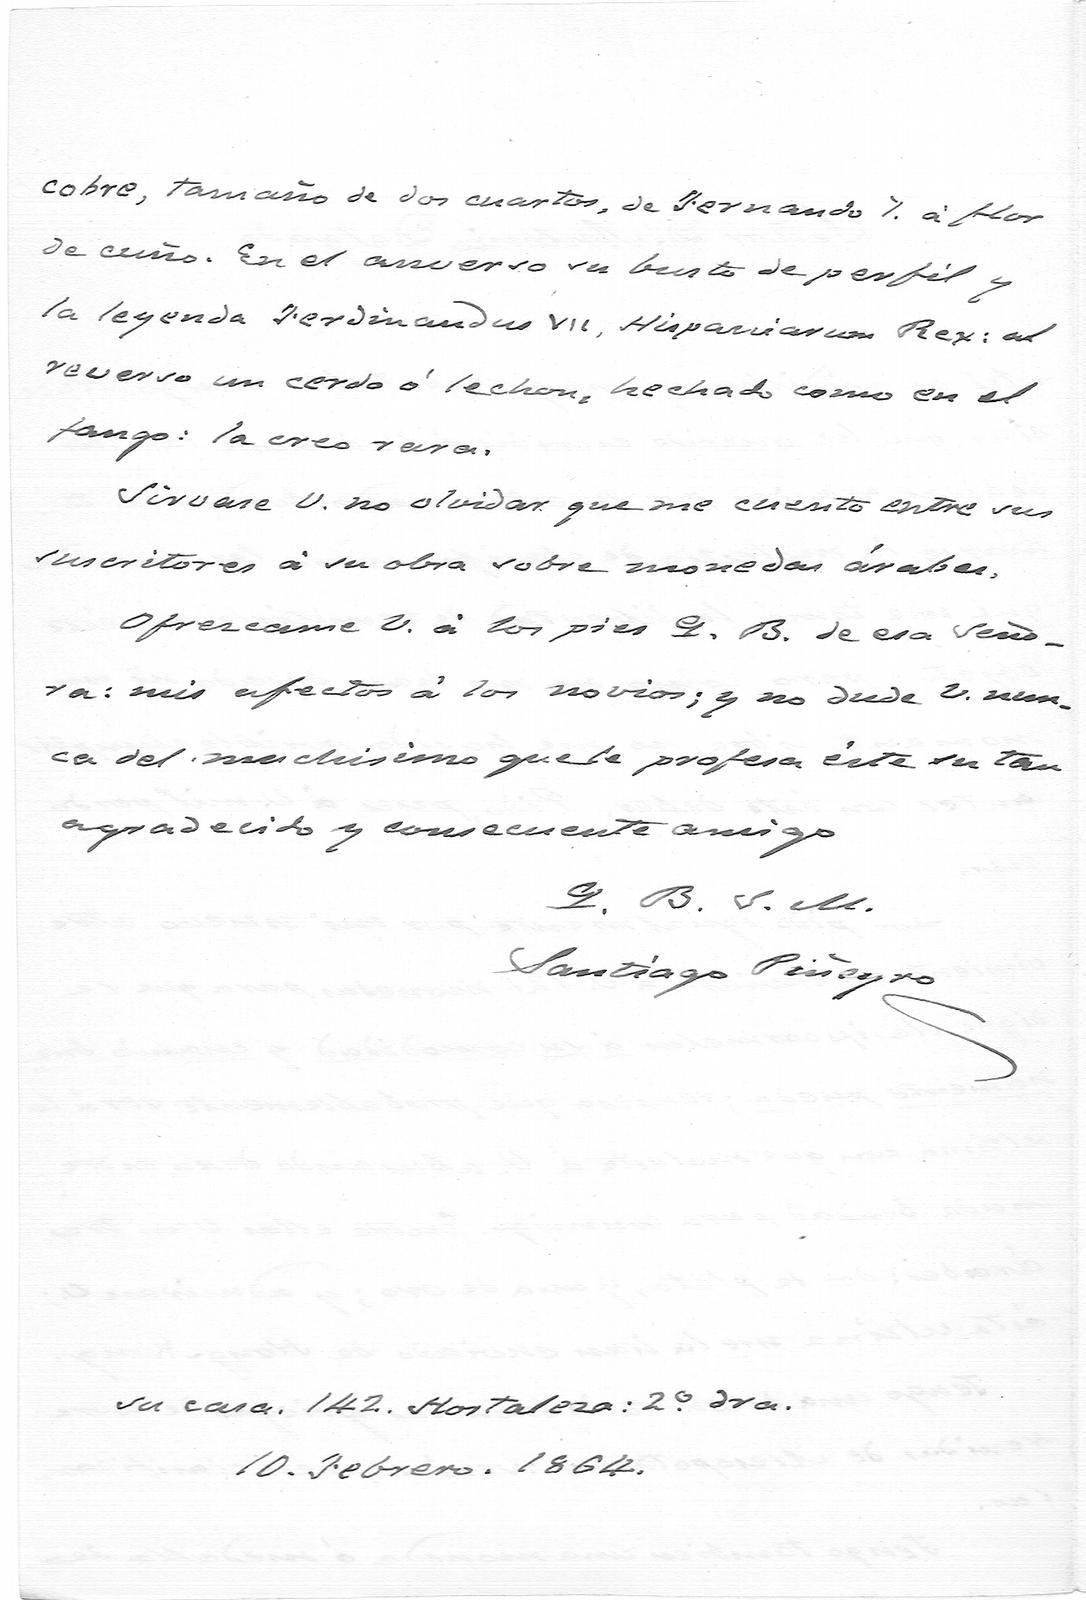 cobre, tamaño de dos cuartos, de Fernando 7. á flor
de cuño. En el anverso su busto de perfil y
la leyenda Ferdinandus VII, Hispaniarum Rex: al
reverso un cerdo ó lechon, hechado como en el
fango: la creo rara.
Sirvase V. no olvidar que me cuento entre sus
suscritores á su obra sobre monedas árabes.
Ofrezcame V. á los pies Q. B. de esa Seño-
ra: mis afectos á los novios; y no dude V. nun-
ca del muchisimo que le profesa éste su tan
agradecido y consecuente amigo
Q. B. S. M.
Santiago Piñeyro
su casa. 142. Hostaleza: 2º dra.
10. Febrero. 1864.